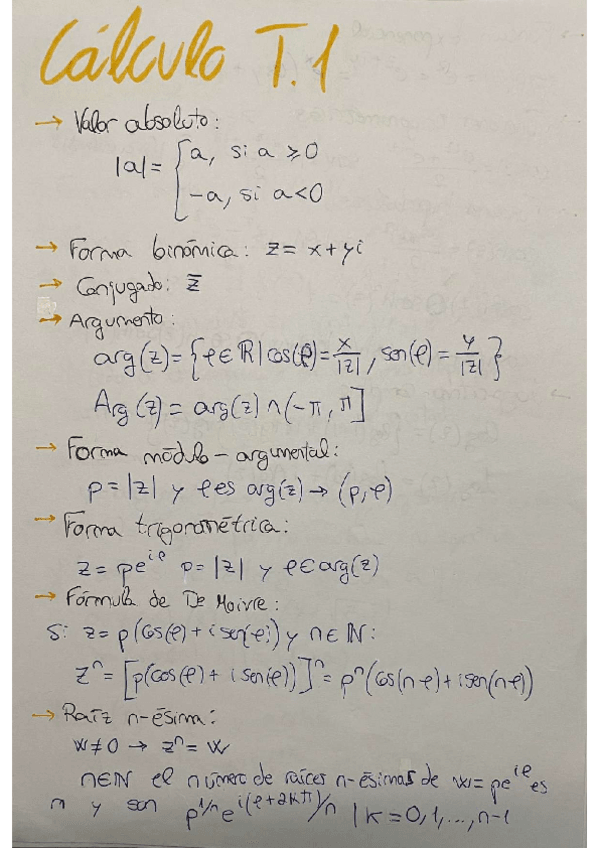 Cálculo T.1
→ Valor absoluto:
|a| = { a, si a ≥ 0
-a, si a < 0
→ Forma binómica: z = x + yi
→ Conjugado: z̄
→ Argumento:
arg(z) = {φ ∈ ℝ | cos(φ) = x/|z|, sen(φ) = y/|z|}
Arg(z) = arg(z) ∩ (-π, π]
→ Forma módulo-argumental:
ρ = |z| y φ es arg(z) → (ρ, φ)
→ Forma trigonométrica:
z = ρe^{iφ} ρ = |z| y φ ∈ arg(z)
→ Fórmula de De Moivre:
Si z = ρ(cos(φ) + i sen(φ)) y n ∈ ℕ:
zⁿ = [ρ(cos(φ) + i sen(φ))]ⁿ = ρⁿ(cos(nφ) + i sen(nφ))
→ Raíz n-ésima:
w ≠ 0 → zⁿ = w
n ∈ ℕ el número de raíces n-ésimas de w = ρe^{iφ} es
n y son ρ^{1/n} e^{i(φ+2kπ)/n} | k = 0, 1, ..., n-1